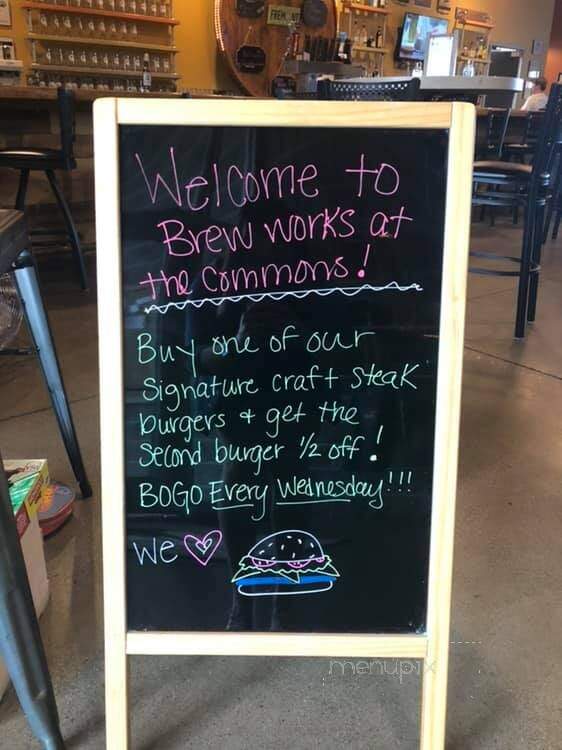 Welcome to
Brew works at
the Commons!
Buy one of our
Signature craft steak
burgers + get the
Second burger 1/2 off!
BOGO Every Wednesday!!!
we
menupix